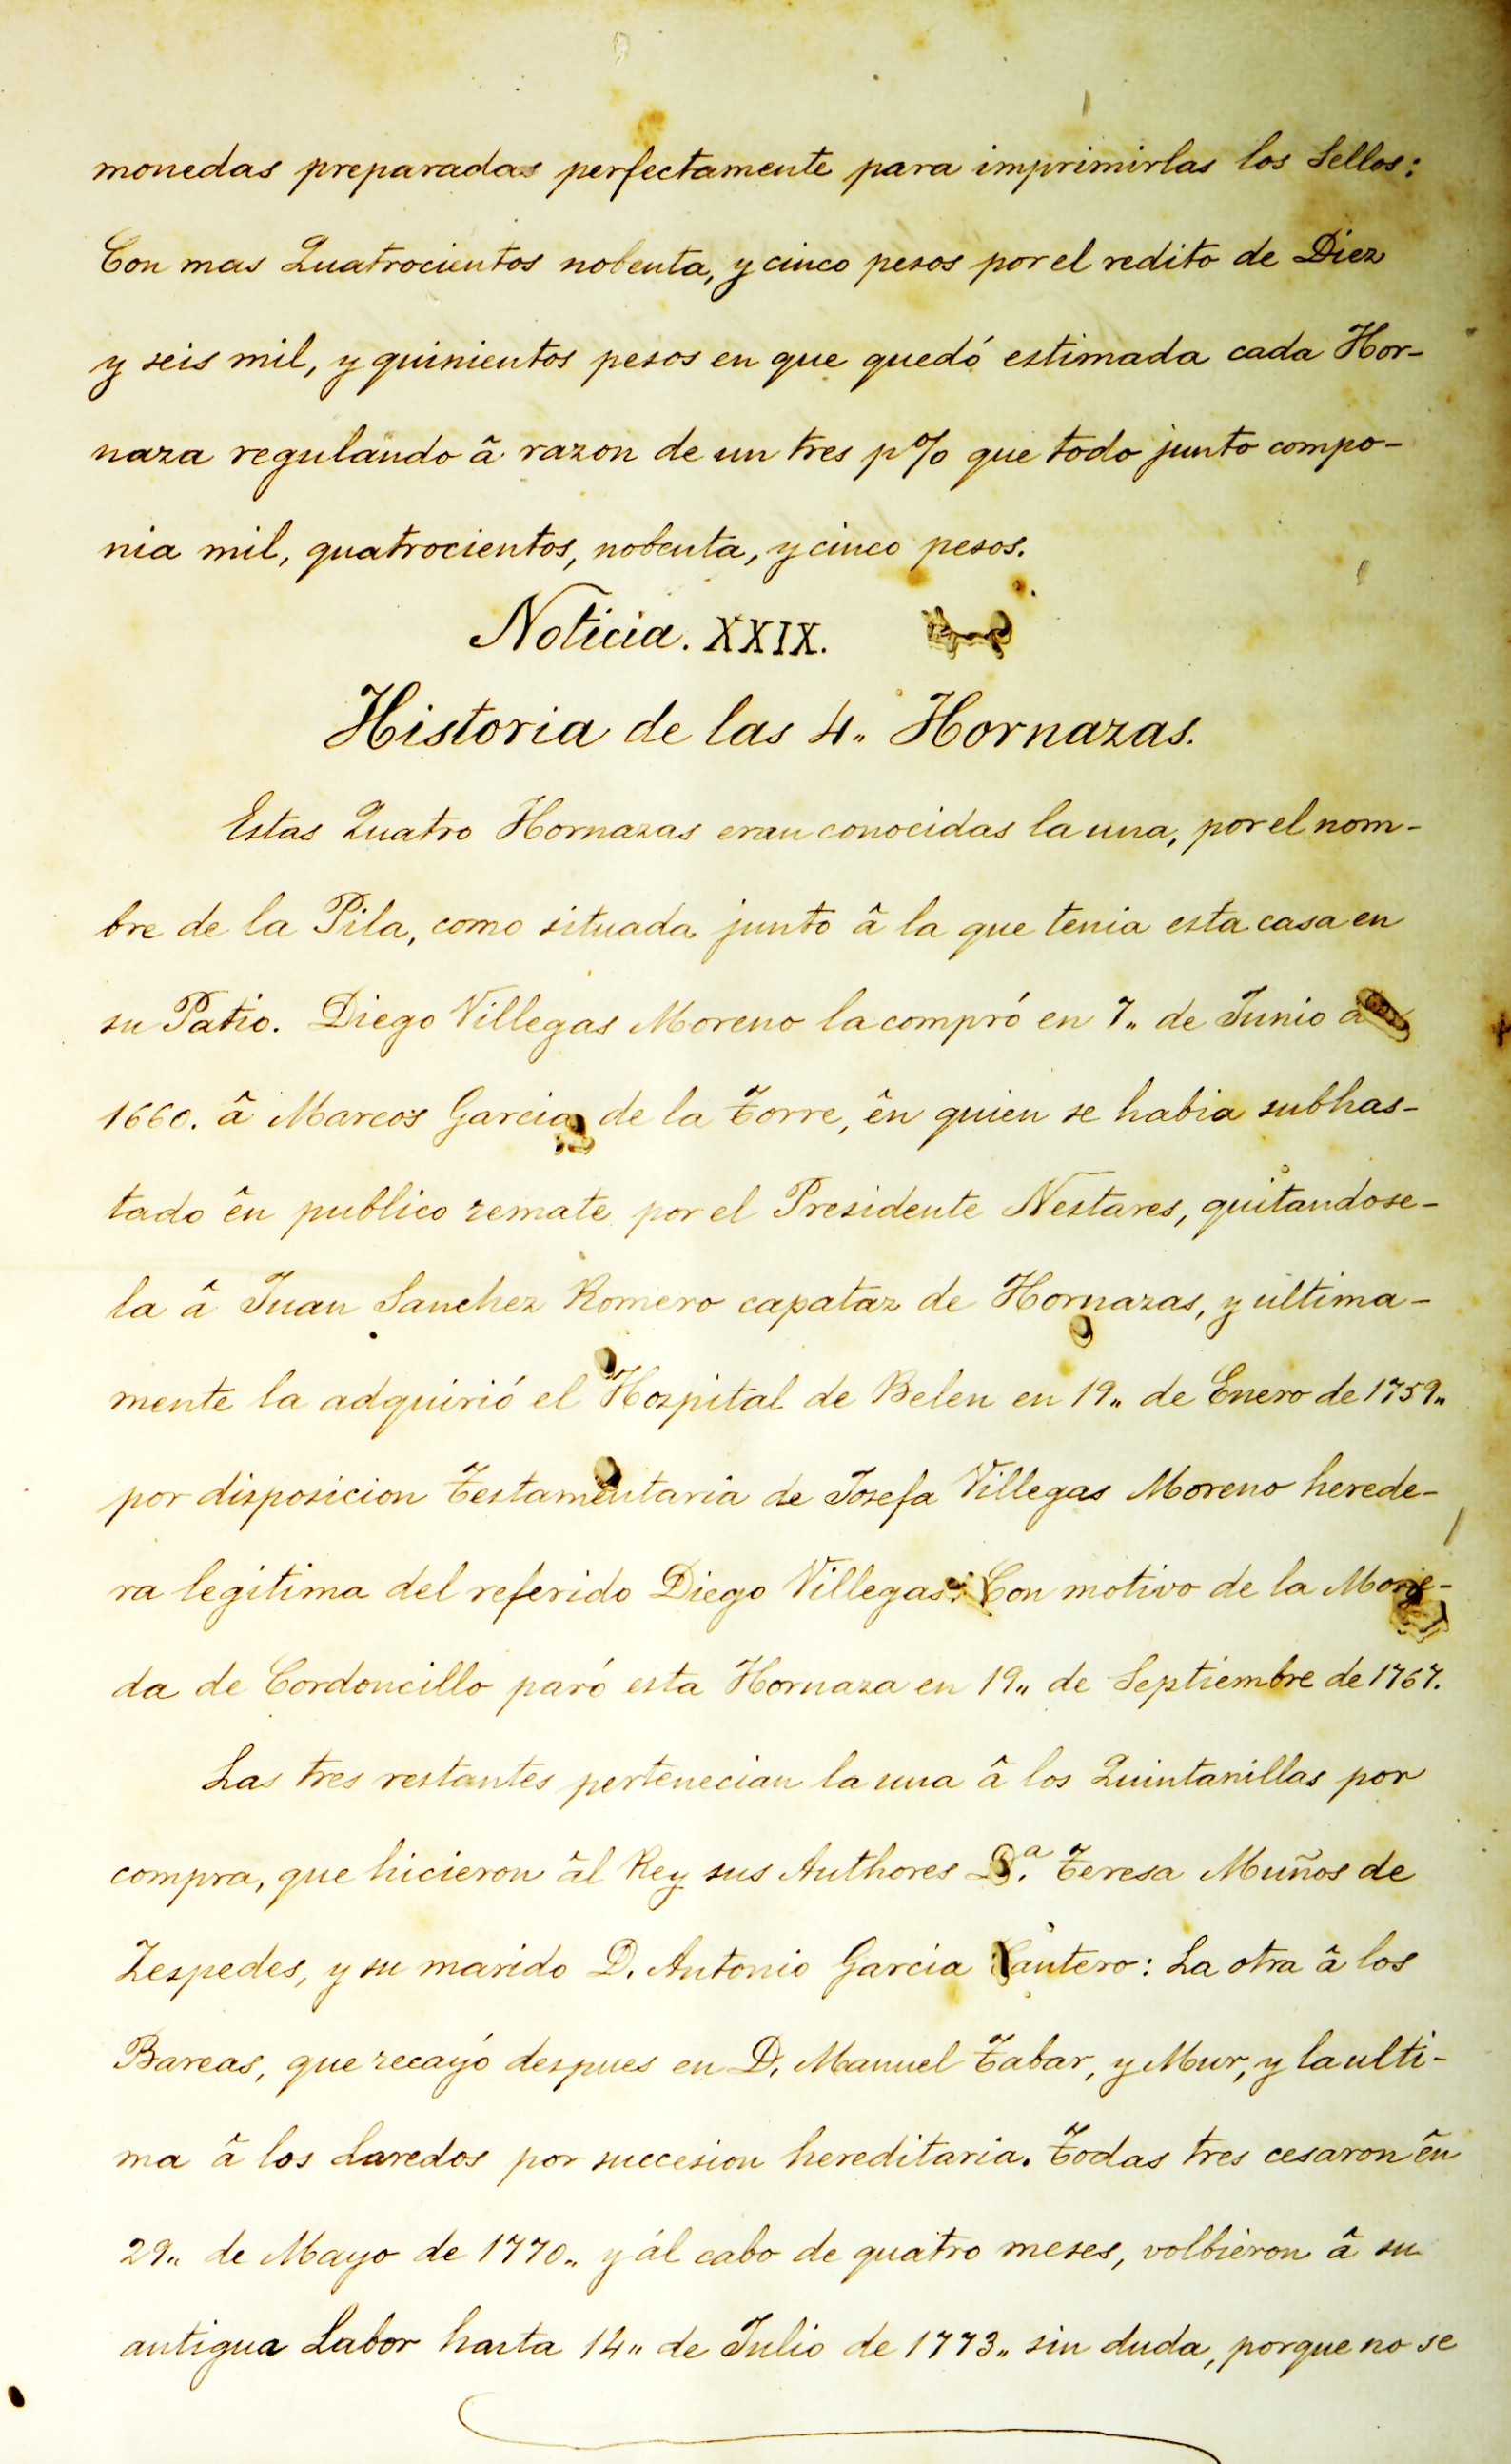 monedas preparadas perfectamente para imprimirlas los Sellos:
Con mas Quatrocientos nobenta, y cinco pesos por el redito de Diez
y seis mil, y quinientos pesos en que quedó estimada cada Hor-
naza regulando â razon de un tres p% que todo junto compo-
nia mil, quatrocientos, nobenta, y cinco pesos.
Noticia. XXIX.
Historia de las 4.. Hornazas.
Estas Quatro Hornazas eran conocidas la una, por el nom-
bre de la Pila, como situada junto â la que tenia esta casa en
su Patio. Diego Villegas Moreno la compró en 7.. de Junio
1660. â Marcos Garcia de la Torre, ên quien se habia subhas-
tado ên publico remate por el Presidente Nestares, quitandose-
la â Juan Sanchez Romero capataz de Hornazas, y ultima-
mente la adquirió el Hospital de Belen en 19.. de Enero de 1759..
por disposicion Testamentaria de Josefa Villegas Moreno herede-
ra legitima del referido Diego Villegas: Con motivo de la Mone-
da de Cordoncillo paró esta Hornaza en 19.. de Septiembre de 1767.
Las tres restantes pertenecian la una â los Quintanillas por
compra, que hicieron âl Rey sus Authores D.ª Teresa Muños de
Zespedes, y su marido D. Antonio Garcia Cantero: La otra â los
Bareas, que recayó despues en D. Manuel Tabar, y Mur, y la ulti-
ma â los Laredos por succesion hereditaria. Todas tres cesaron ên
29.. de Mayo de 1770.. y ál cabo de quatro meses, volbieron â su
antigua Labor hasta 14.. de Julio de 1773.. sin duda, porque no se